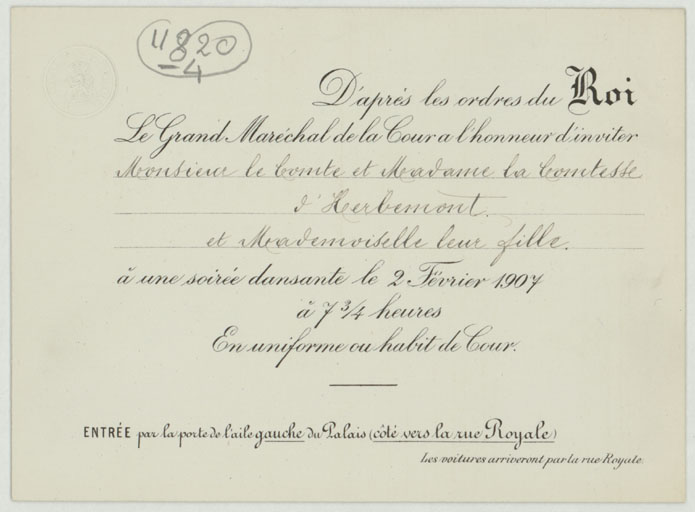 11820
-4
D'après les ordres du Roi
Le Grand Maréchal de la Cour a l'honneur d'inviter
Monsieur le Comte et Madame la Comtesse
d'Herbemont.
et Mademoiselle leur fille.
à une soirée dansante le 2 Février 1907
à 7 3/4 heures
En uniforme ou habit de Cour.
ENTRÉE par la porte de l'aile gauche du Palais (côté vers la rue Royale)
Les voitures arriveront par la rue Royale.